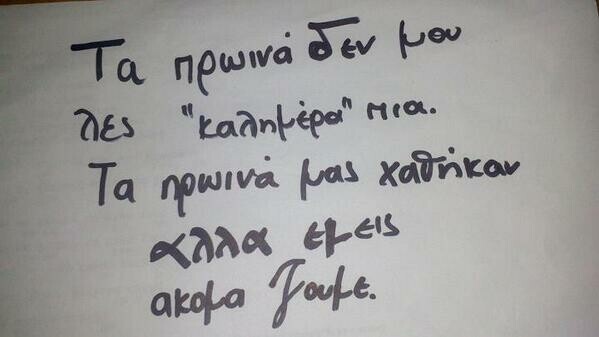 Τα πρωινά δεν μου
λες "καλημέρα" πια.
Τα πρωινά μας χαθήκαν
αλλα εμεις
ακομα ζουμε.